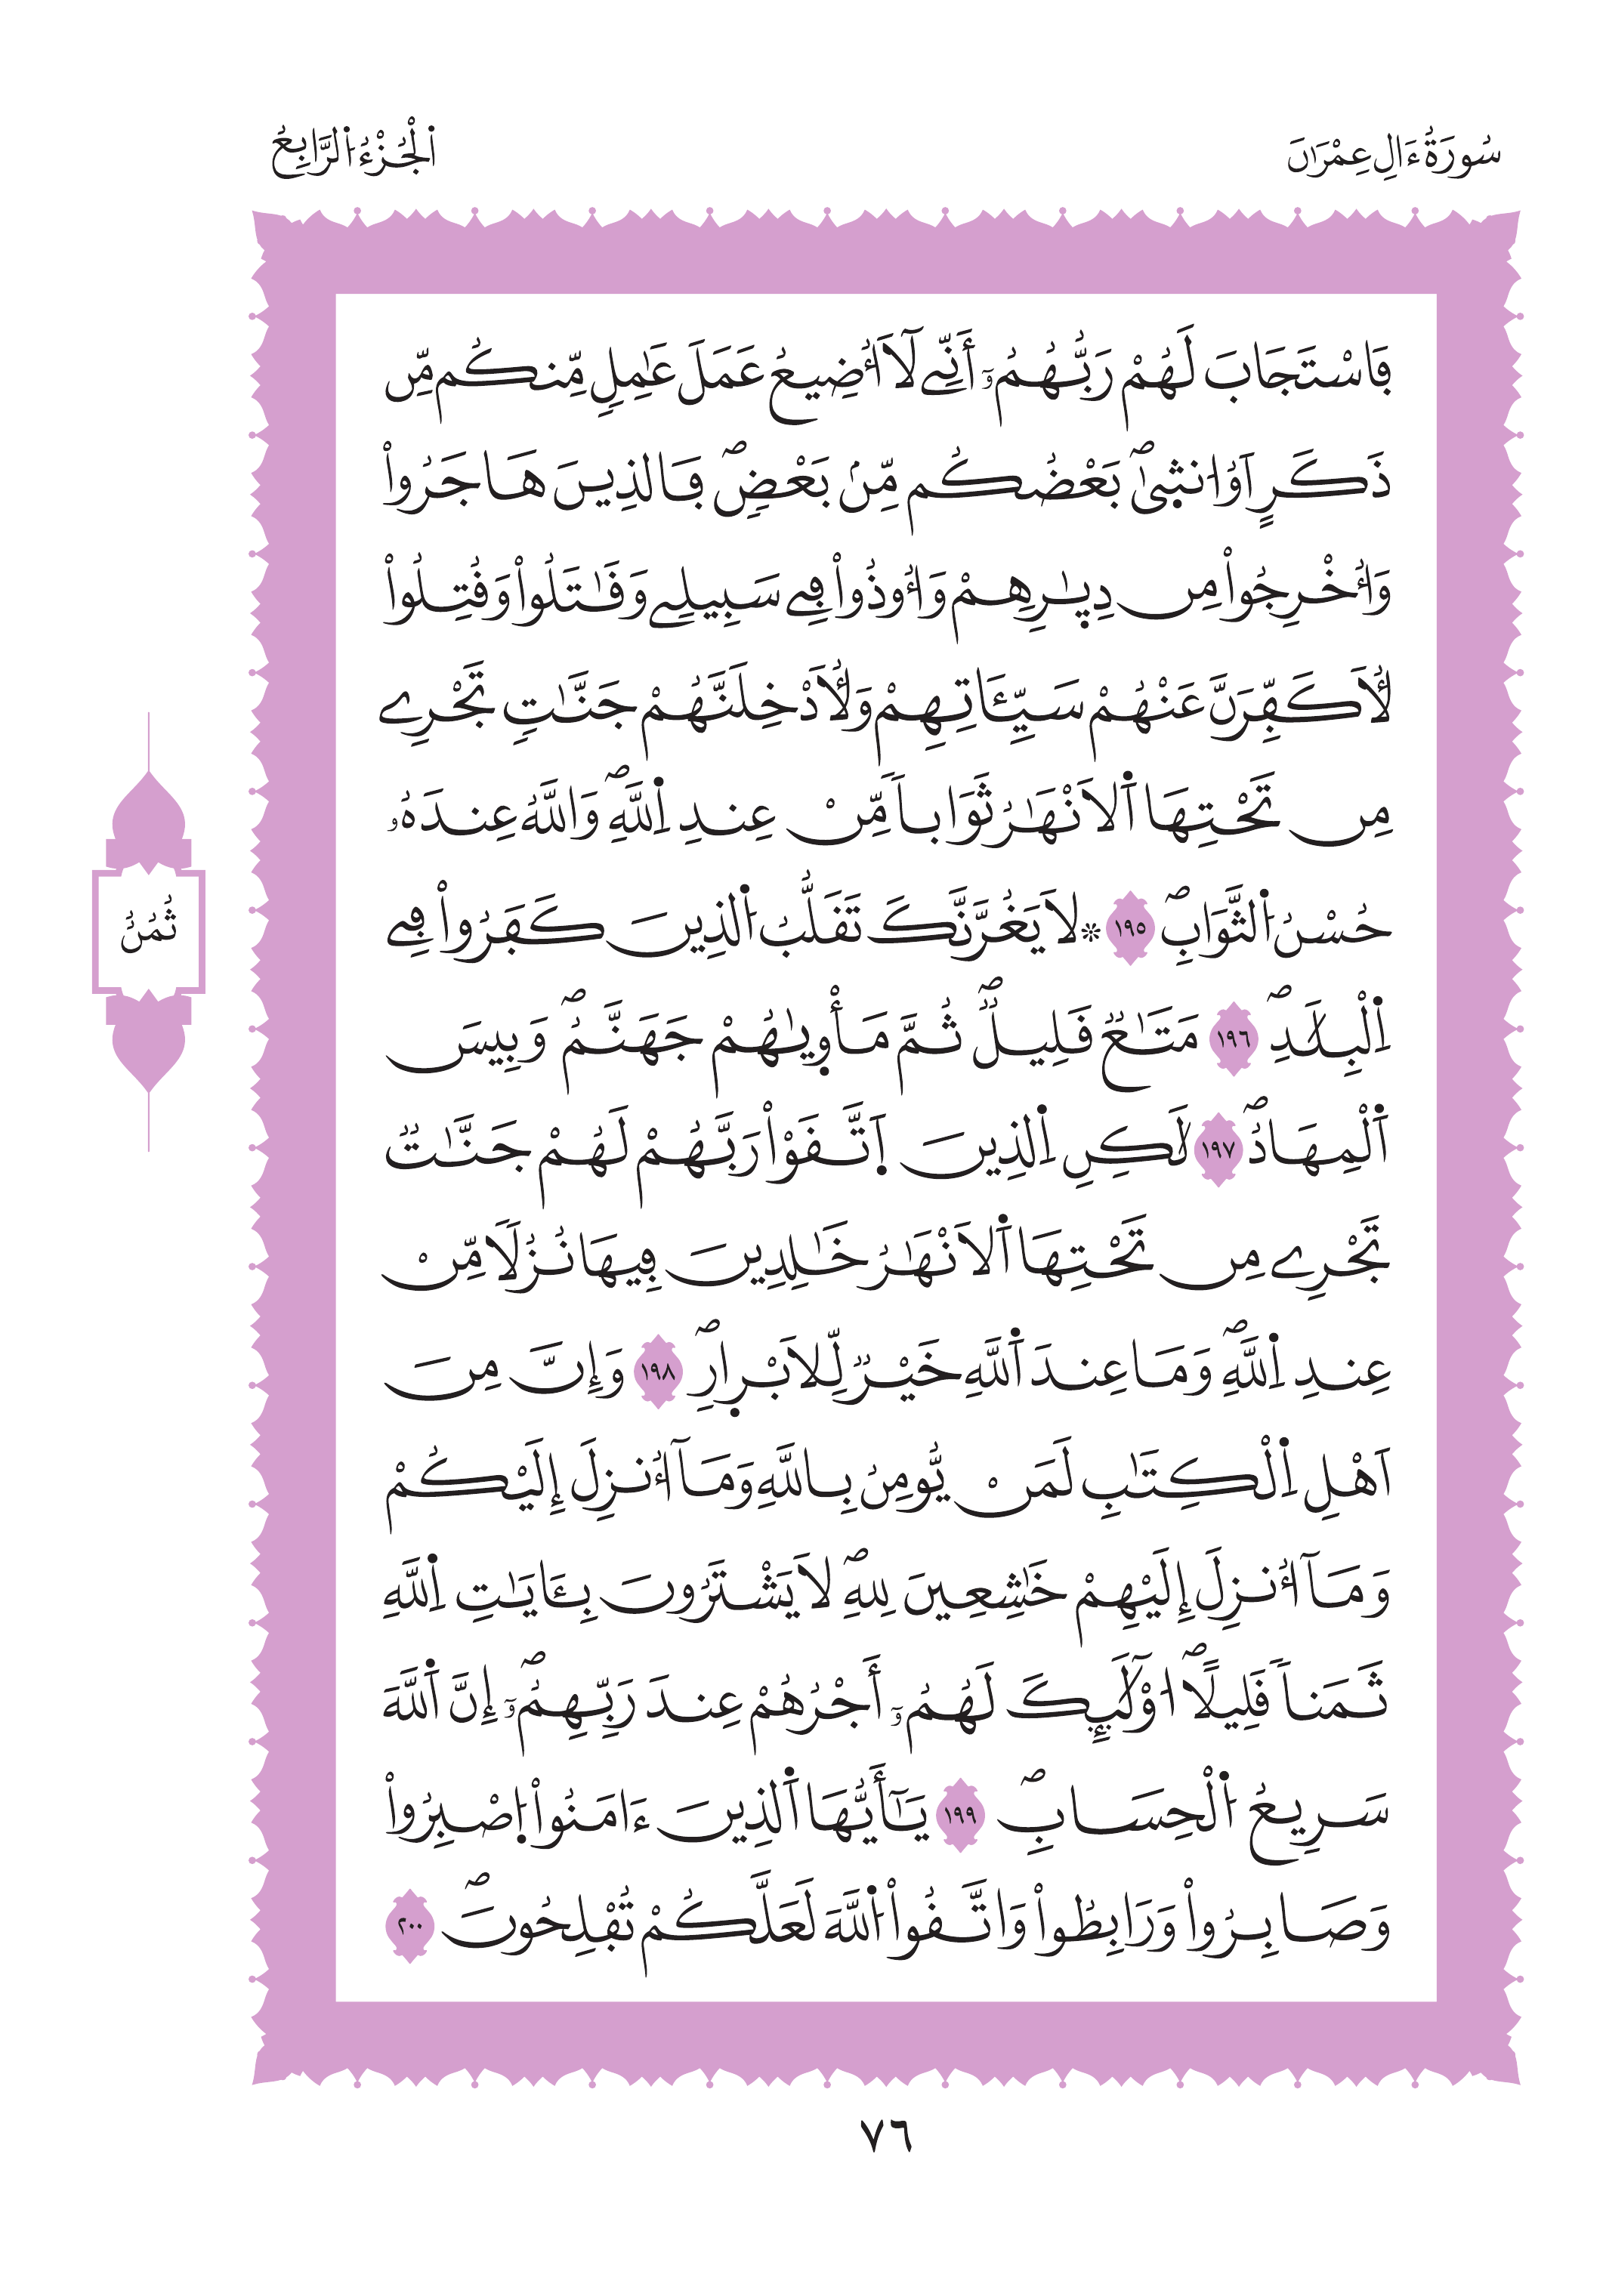 سُورَةُ ءَالِ عِمْرَٰنَ
اَ۬لْجُزْءُ اُ۬لرَّابِعُ
فَاسْتَجَابَ لَهُمْ رَبُّهُمُۥٓ أَنِّے لَآ أُضِيعُ عَمَلَ عَٰمِلٖ مِّنكُم مِّن
ذَكَرٍ اَوُ ا۟نث۪يٰۖ بَعْضُكُم مِّنۢ بَعْضٖۖ فَالذِينَ هَاجَرُواْ
وَأُخْرِجُواْ مِن دِيٰ۪رِهِمْ وَأُوذُواْ فِے سَبِيلِے وَقَٰتَلُواْ وَقُتِلُواْ
لَأُكَفِّرَنَّ عَنْهُمْ سَيِّـَٔاتِهِمْ وَلَأُدْخِلَنَّهُمْ جَنَّٰتٖ تَجْرِے
مِن تَحْتِهَا اَ۬لَانْهَٰرُ ثَوَاباٗ مِّنْ عِندِ اِ۬للَّهِۖ وَاللَّهُ عِندَهُۥ
حُسْنُ اُ۬لثَّوَابِۖ ١٩٥ ۞ لَا يَغُرَّنَّكَ تَقَلُّبُ اُ۬لذِينَ كَفَرُواْ فِے
ثُمُنُ
اِ۬لْبِلَٰدِۖ ١٩٦ مَتَٰعٞ قَلِيلٞۖ ثُمَّ مَأْو۪يٰهُمْ جَهَنَّمُۖ وَبِيسَ
اَ۬لْمِهَادُۖ ١٩٧ لَٰكِنِ اِ۬لذِينَ اَ۪تَّقَوْاْ رَبَّهُمْ لَهُمْ جَنَّٰتٞ
تَجْرِے مِن تَحْتِهَا اَ۬لَانْهَٰرُ خَٰلِدِينَ فِيهَا نُزُلاٗ مِّنْ
عِندِ اِ۬للَّهِۖ وَمَا عِندَ اَ۬للَّهِ خَيْرٞ لِّلَابْر۪ارِۖ ١٩٨ وَإِنَّ مِنَ
اَهْلِ اِ۬لْكِتَٰبِ لَمَنْ يُّومِنُ بِاللَّهِ وَمَآ أُنزِلَ إِلَيْكُمْ
وَمَآ أُنزِلَ إِلَيْهِمْ خَٰشِعِينَ لِلهِۖ لَا يَشْتَرُونَ بِـَٔايَٰتِ اِ۬للَّهِ
ثَمَناٗ قَلِيلاًۖ ا۟وْلَٰٓئِكَ لَهُمُۥٓ أَجْرُهُمْ عِندَ رَبِّهِمُۥٓۖ إِنَّ اَ۬للَّهَ
سَرِيعُ اُ۬لْحِسَابِۖ ١٩٩ يَٰٓأَيُّهَا اَ۬لذِينَ ءَامَنُواْ اُ۪صْبِرُواْ
وَصَابِرُواْ وَرَابِطُواْ وَاتَّقُواْ اُ۬للَّهَ لَعَلَّكُمْ تُفْلِحُونَۖ ٢٠٠
٧٦